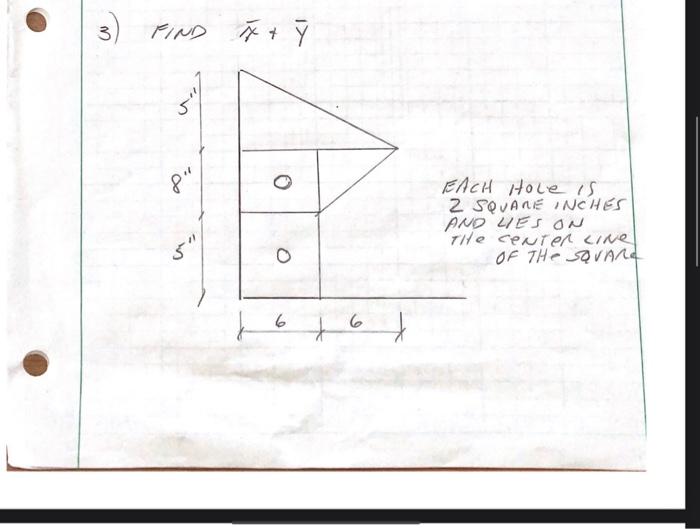 3) FIND x̄ + ȳ
5"
8"
5"
EACH HOLE IS
2 SQUARE INCHES
AND LIES ON
THE CENTER LINE
OF THE SQUARE
6 6